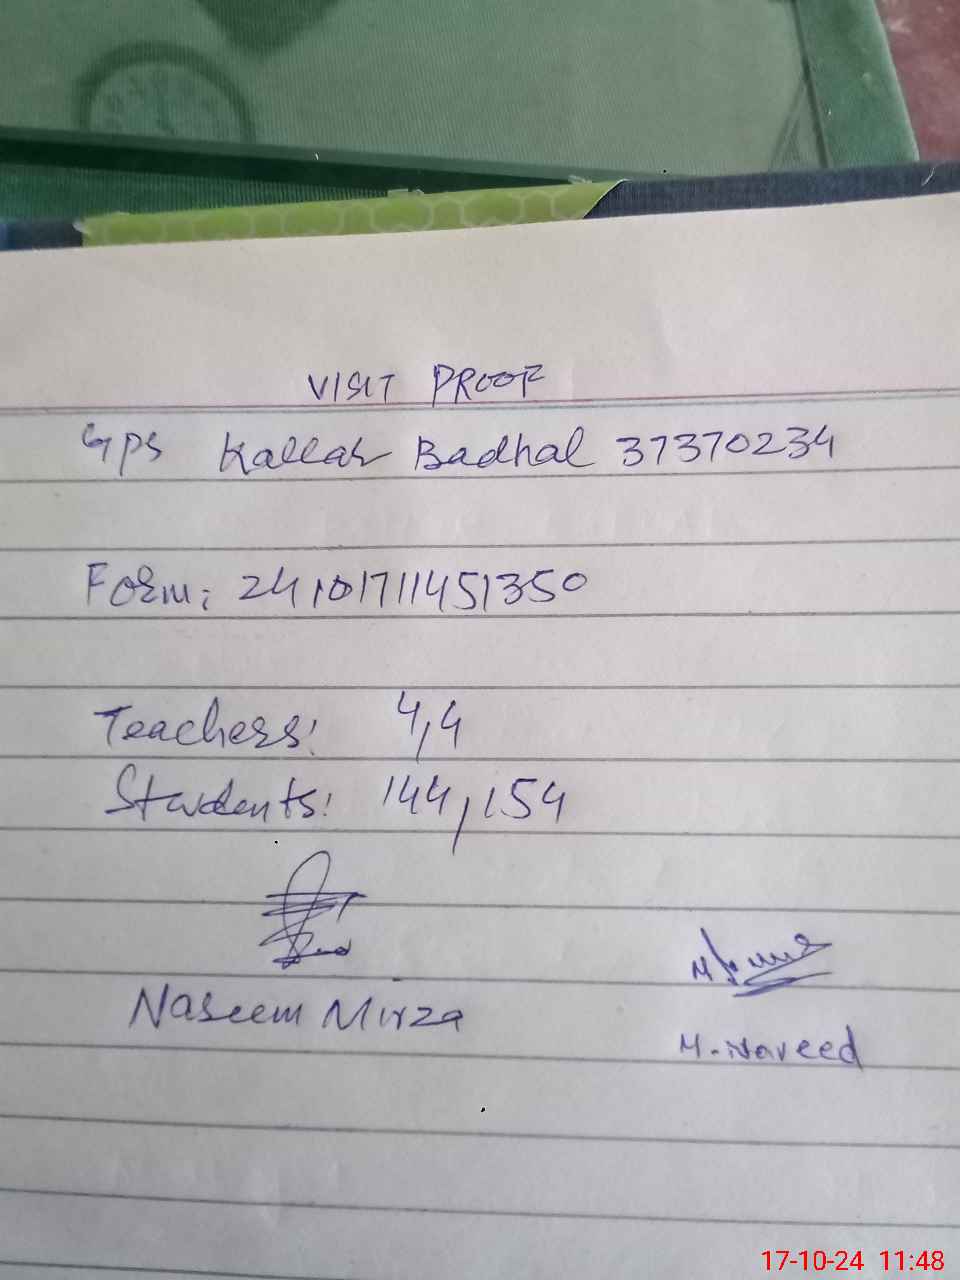 VISIT PROOF
GPS Kallar Badhal 37370234
Form: 24101711451350
Teachers: 4,4
Students: 144,154
Naseem Mirza
M. Naveed
17-10-24 11:48